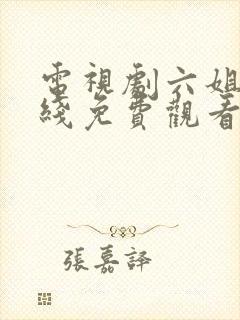 電視劇六姐
綫免費觀看
張嘉譯